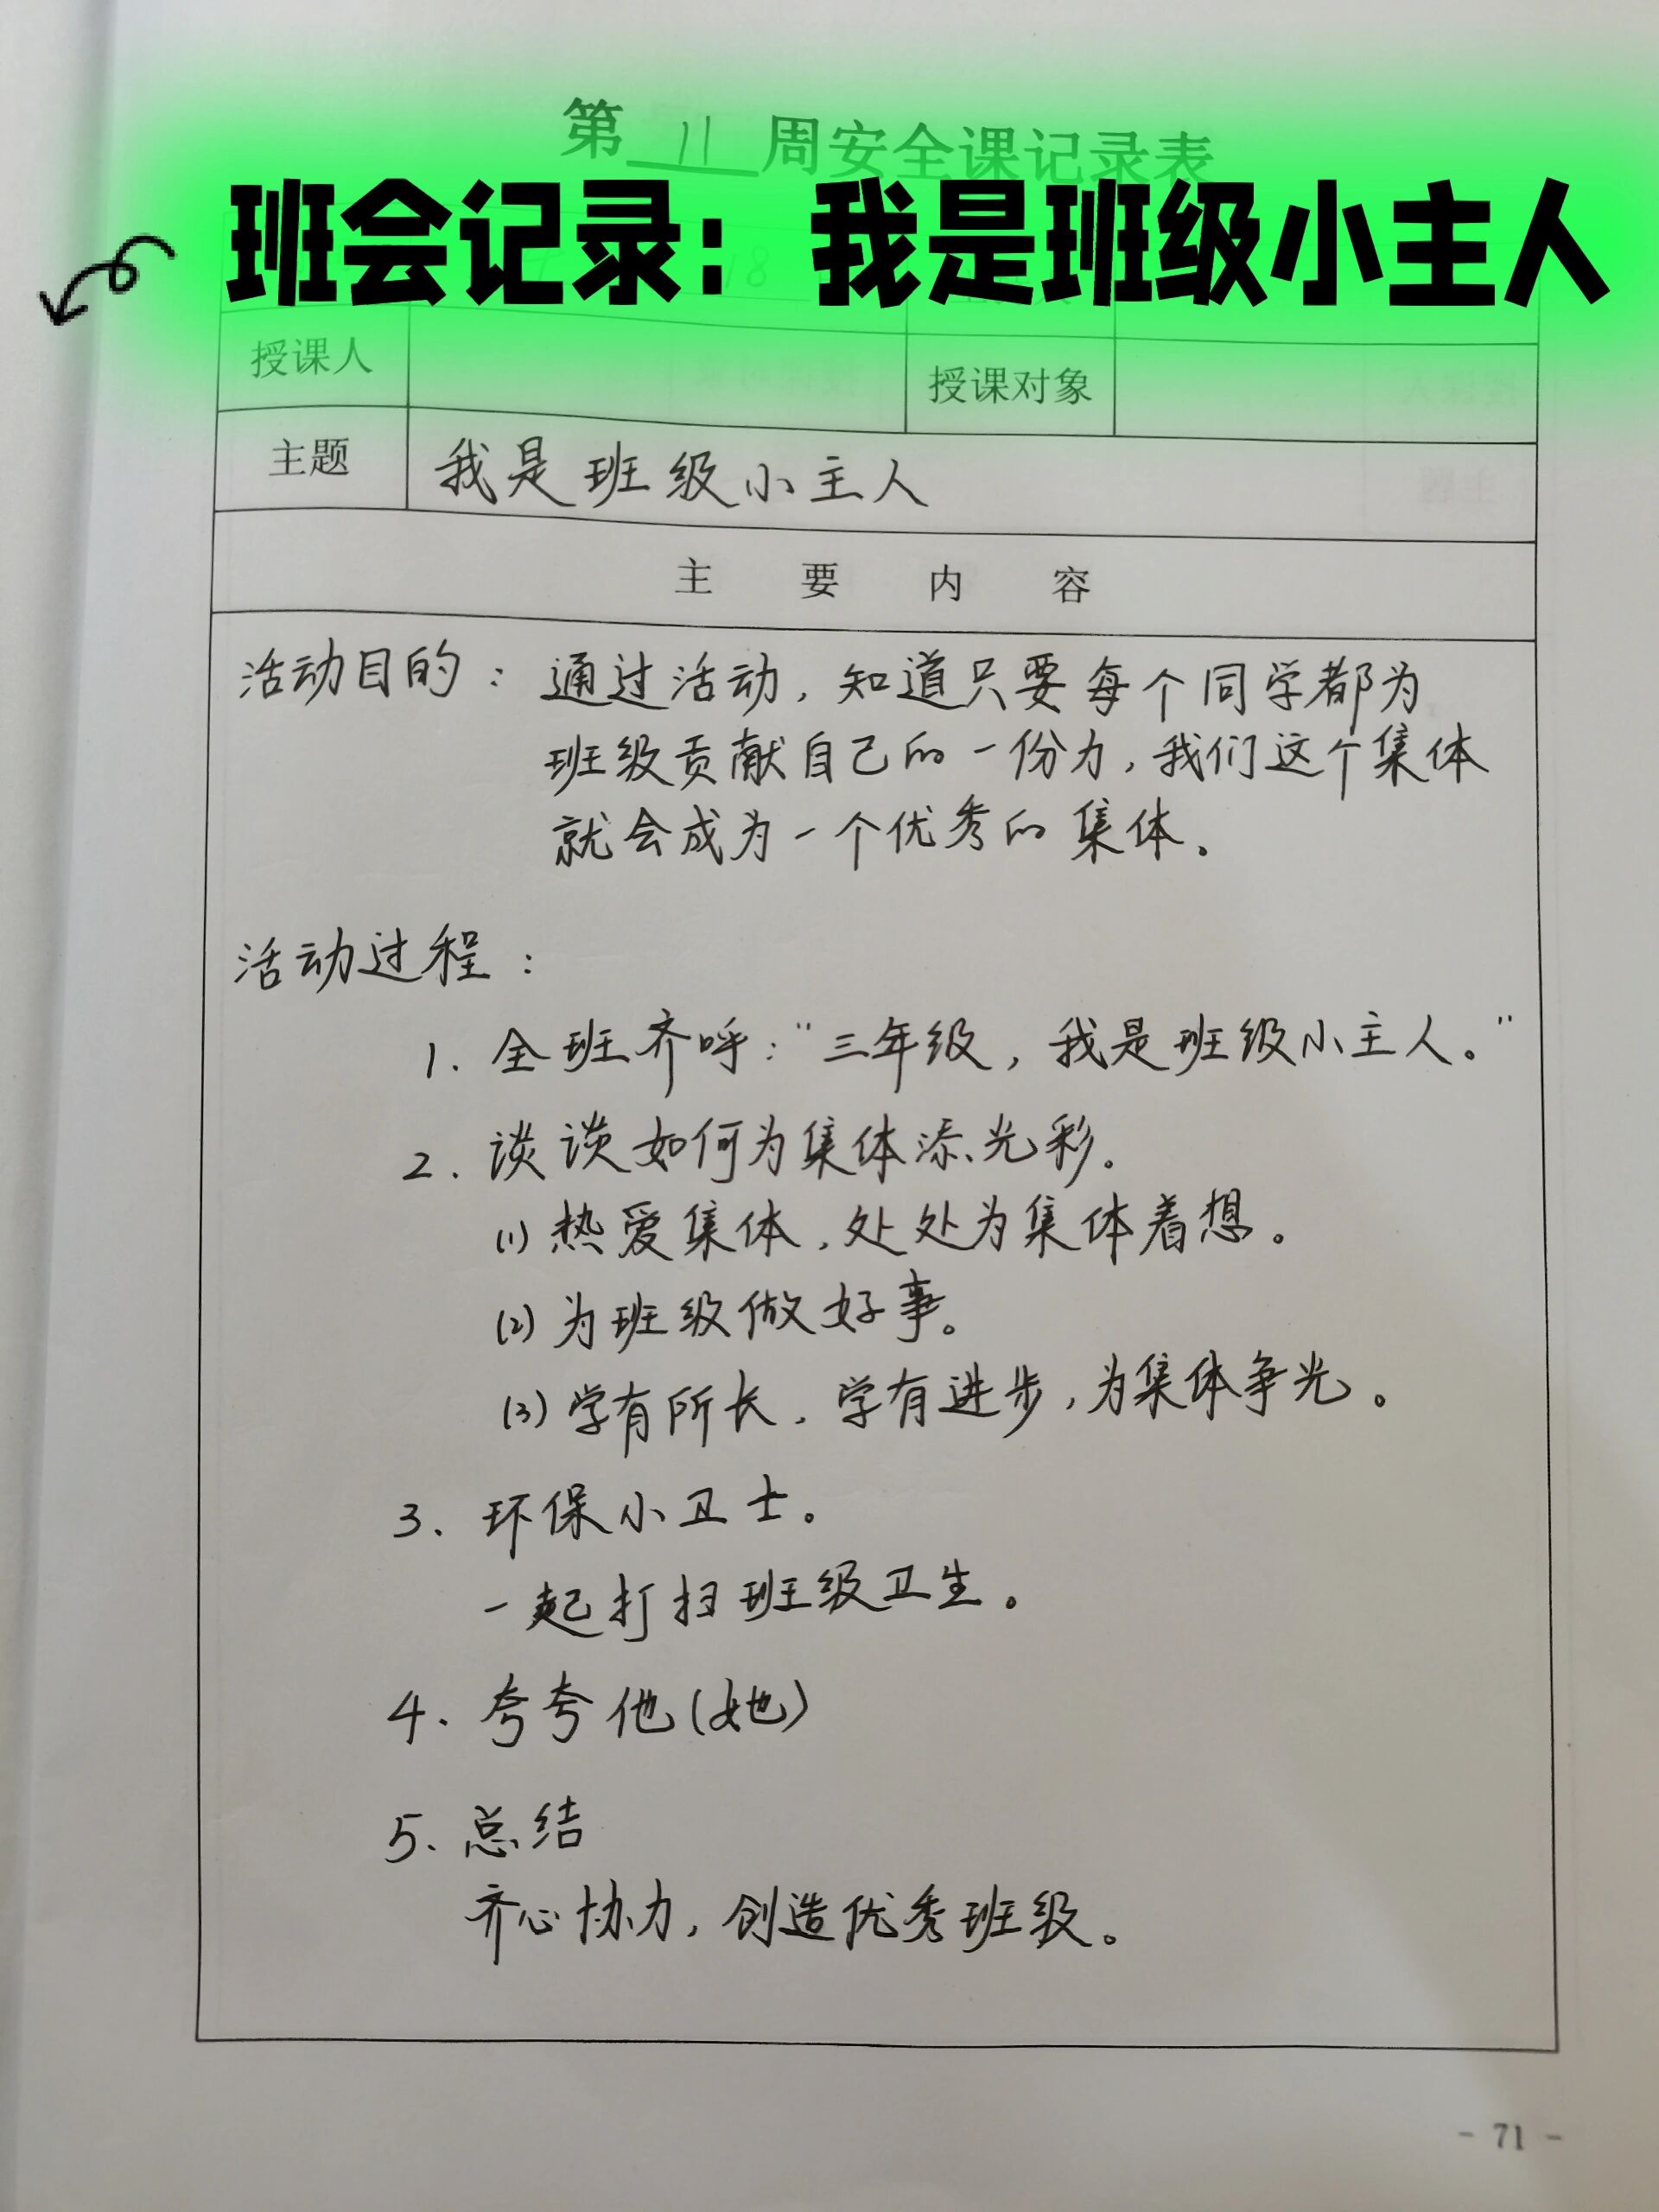 第 11 周安全课记录表
班会记录：我是班级小主人
授课人 授课对象
主题 我是班级小主人
主要内容
活动目的：通过活动，知道只要每个同学都为
班级贡献自己的一份力，我们这个集体
就会成为一个优秀的集体。
活动过程：
1. 全班齐呼："三年级，我是班级小主人。"
2. 谈谈如何为集体添光彩.
(1) 热爱集体，处处为集体着想。
(2) 为班级做好事。
(3) 学有所长，学有进步，为集体争光。
3、环保小卫士。
一起打扫班级卫生。
4、夸夸他(她)
5、总结
齐心协力，创造优秀班级。
- 71 -